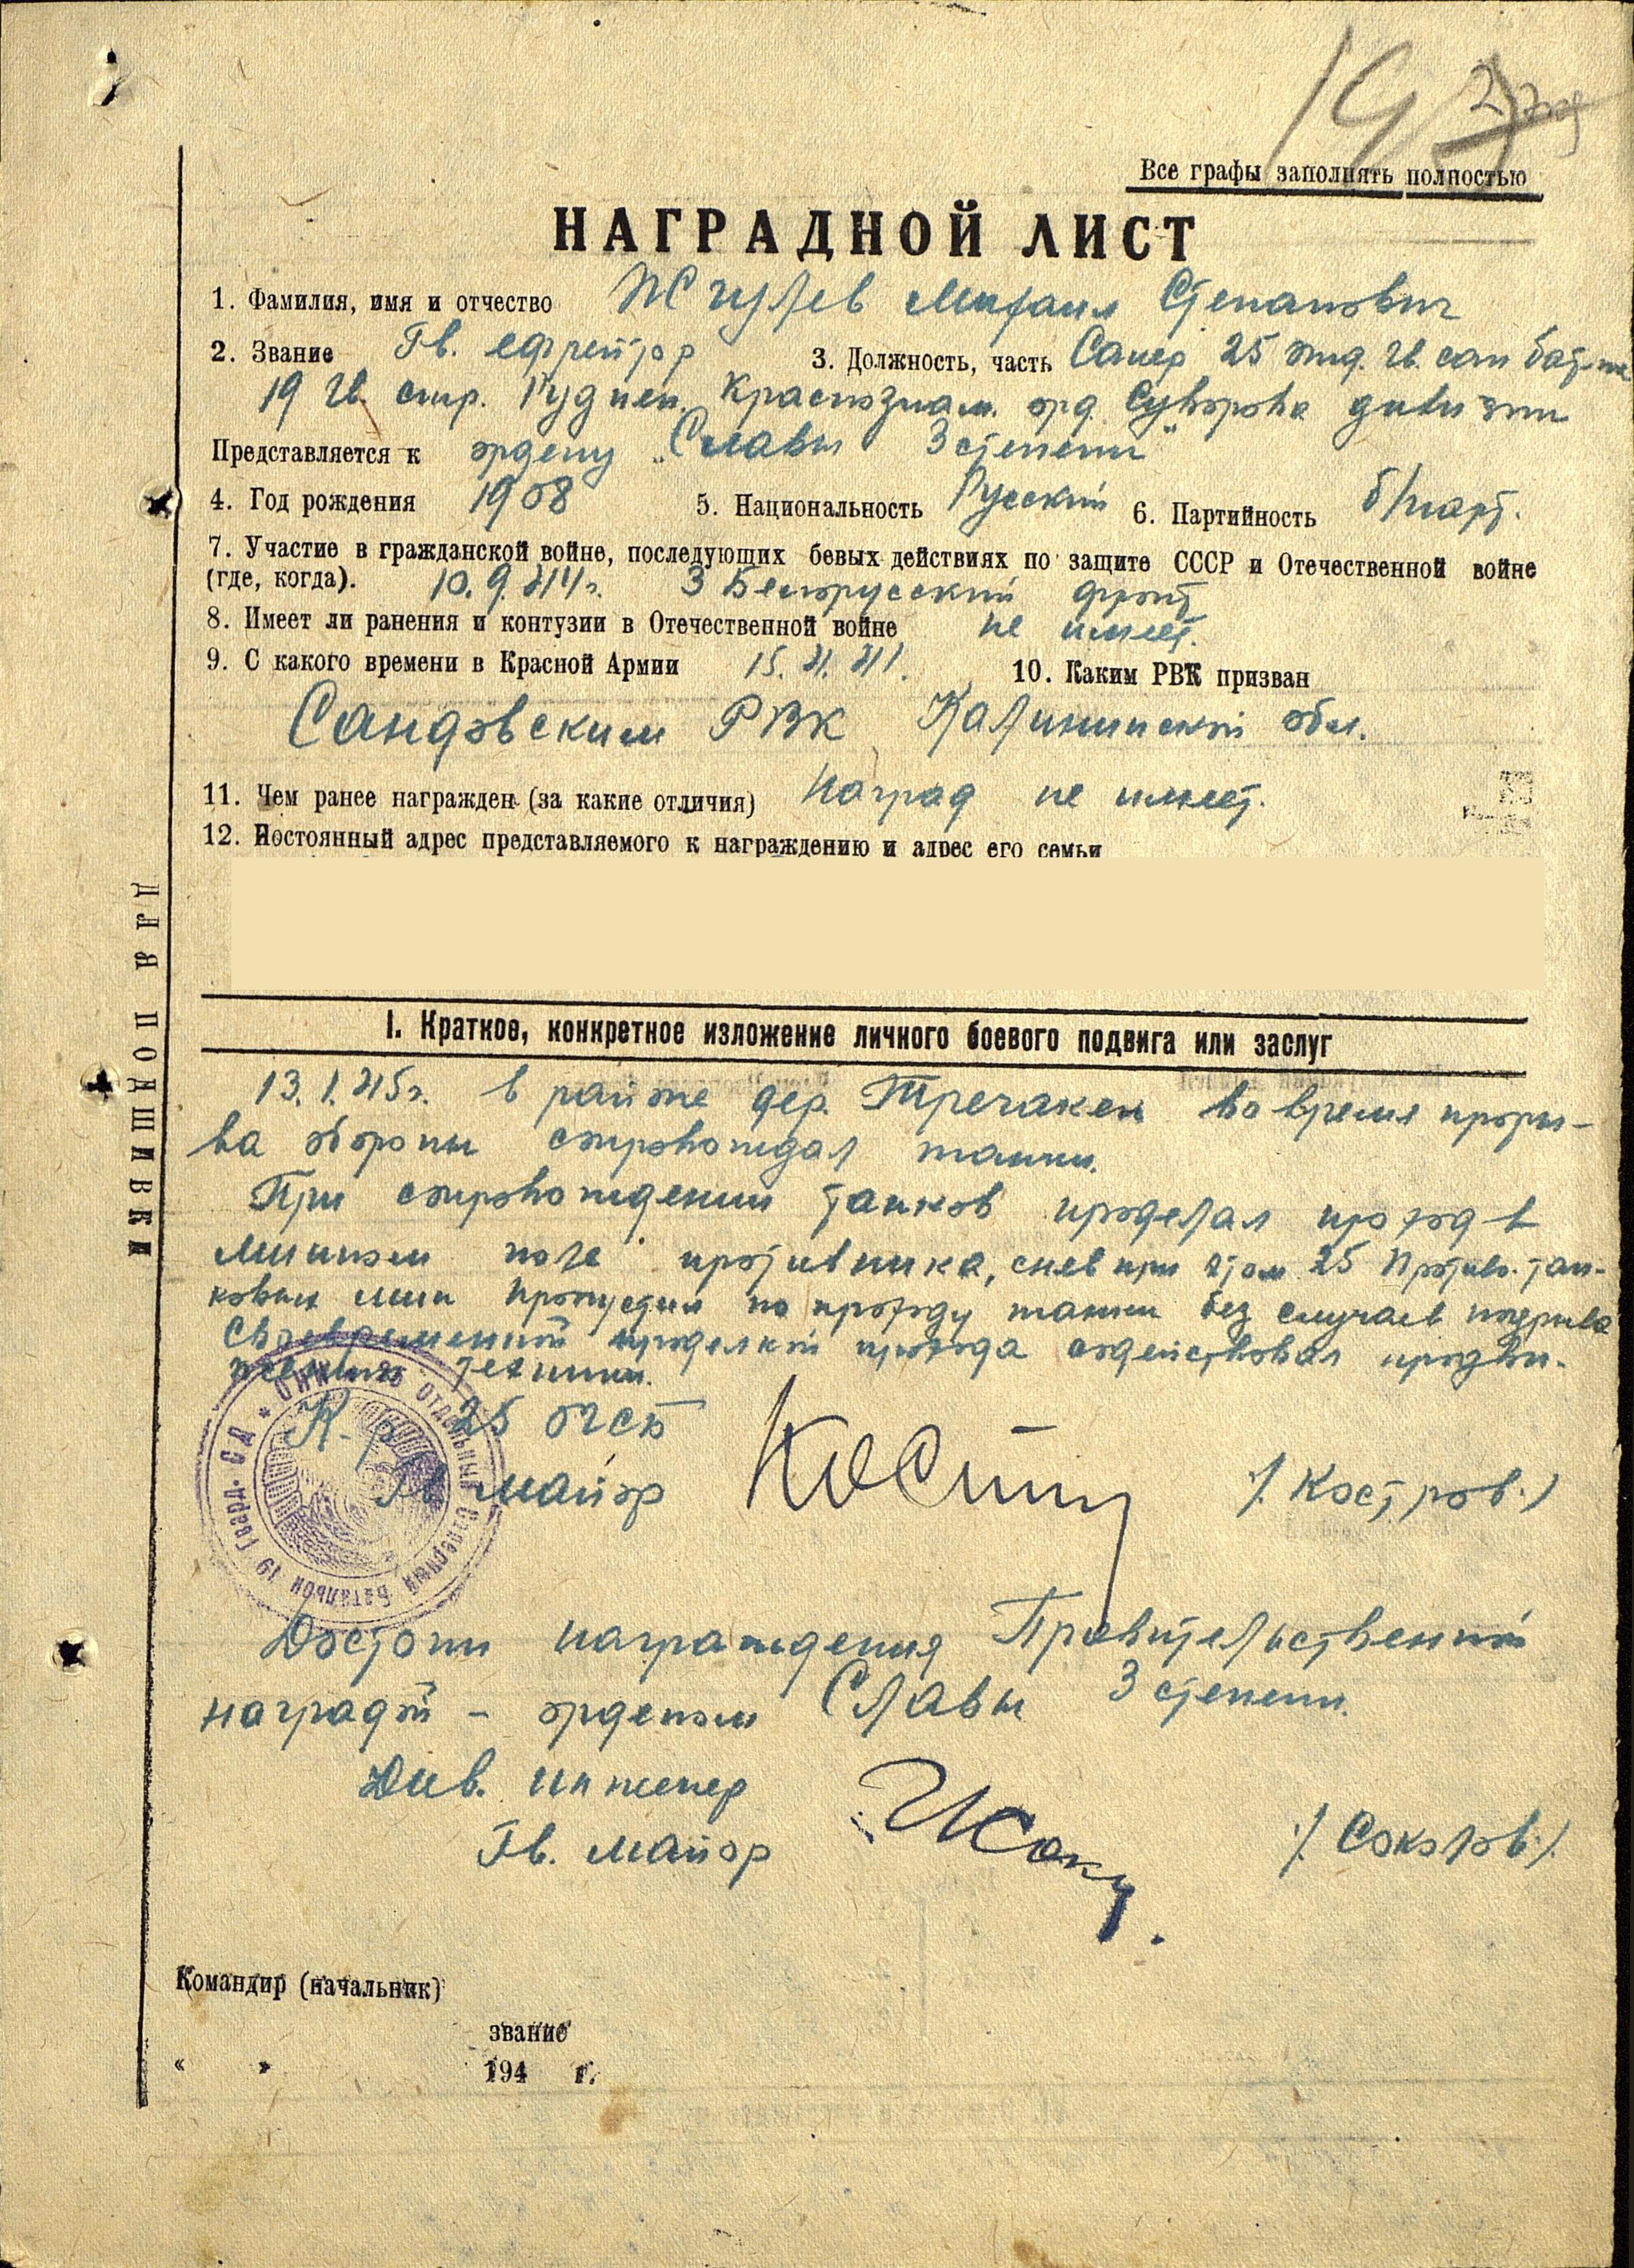 19
Все графы заполнять полностью
НАГРАДНОЙ ЛИСТ
1. Фамилия, имя и отчество Жгулев Михаил Степанович
2. Звание Гв. ефрейтор 3. Должность, часть Сапер 25 отд. гв. сап бат-на
19 гв. стр. Руднен. Краснознам. орд. Суворова дивизии
Представляется к ордену „Славы 3 степени"
4. Год рождения 1908 5. Национальность Русский 6. Партийность б/парт.
7. Участие в гражданской войне, последующих бевых действиях по защите СССР и Отечественной войне
(где, когда). 10.9.44г. 3 Белорусский фронт
8. Имеет ли ранения и контузии в Отечественной войне не имеет.
9. С какого времени в Красной Армии 10. Каким РВК призван
Сандовским РВК Калининской обл.
11. Чем ранее награжден (за какие отличия) Наград не имеет.
12. Постоянный адрес представляемого к награждению и адрес его семьи
Для подшивки
I. Краткое, конкретное изложение личного боевого подвига или заслуг
13.1.45г. в районе дер. Тречакен во время проры-
ва обороны сопровождал танки.
При сопровождении танков проделал проход в
минном поле противника, снев при этом 25 Противо.тан-
ковых мин пропустил по проходу танки без случаев подрыва
Своевременной проделкой прохода содействовал продви-
жению техники.
К-р 25 ОГСБ
Гв майор /. Костров./
19 Гвард. СД * отдельный Саперный Батальон
Достоин награждения Правительственной
наградой - орденом Славы 3 степени.
Див. инженер
Гв. майор /. Соколов./
Командир (начальник)
звание
« » 194 г.